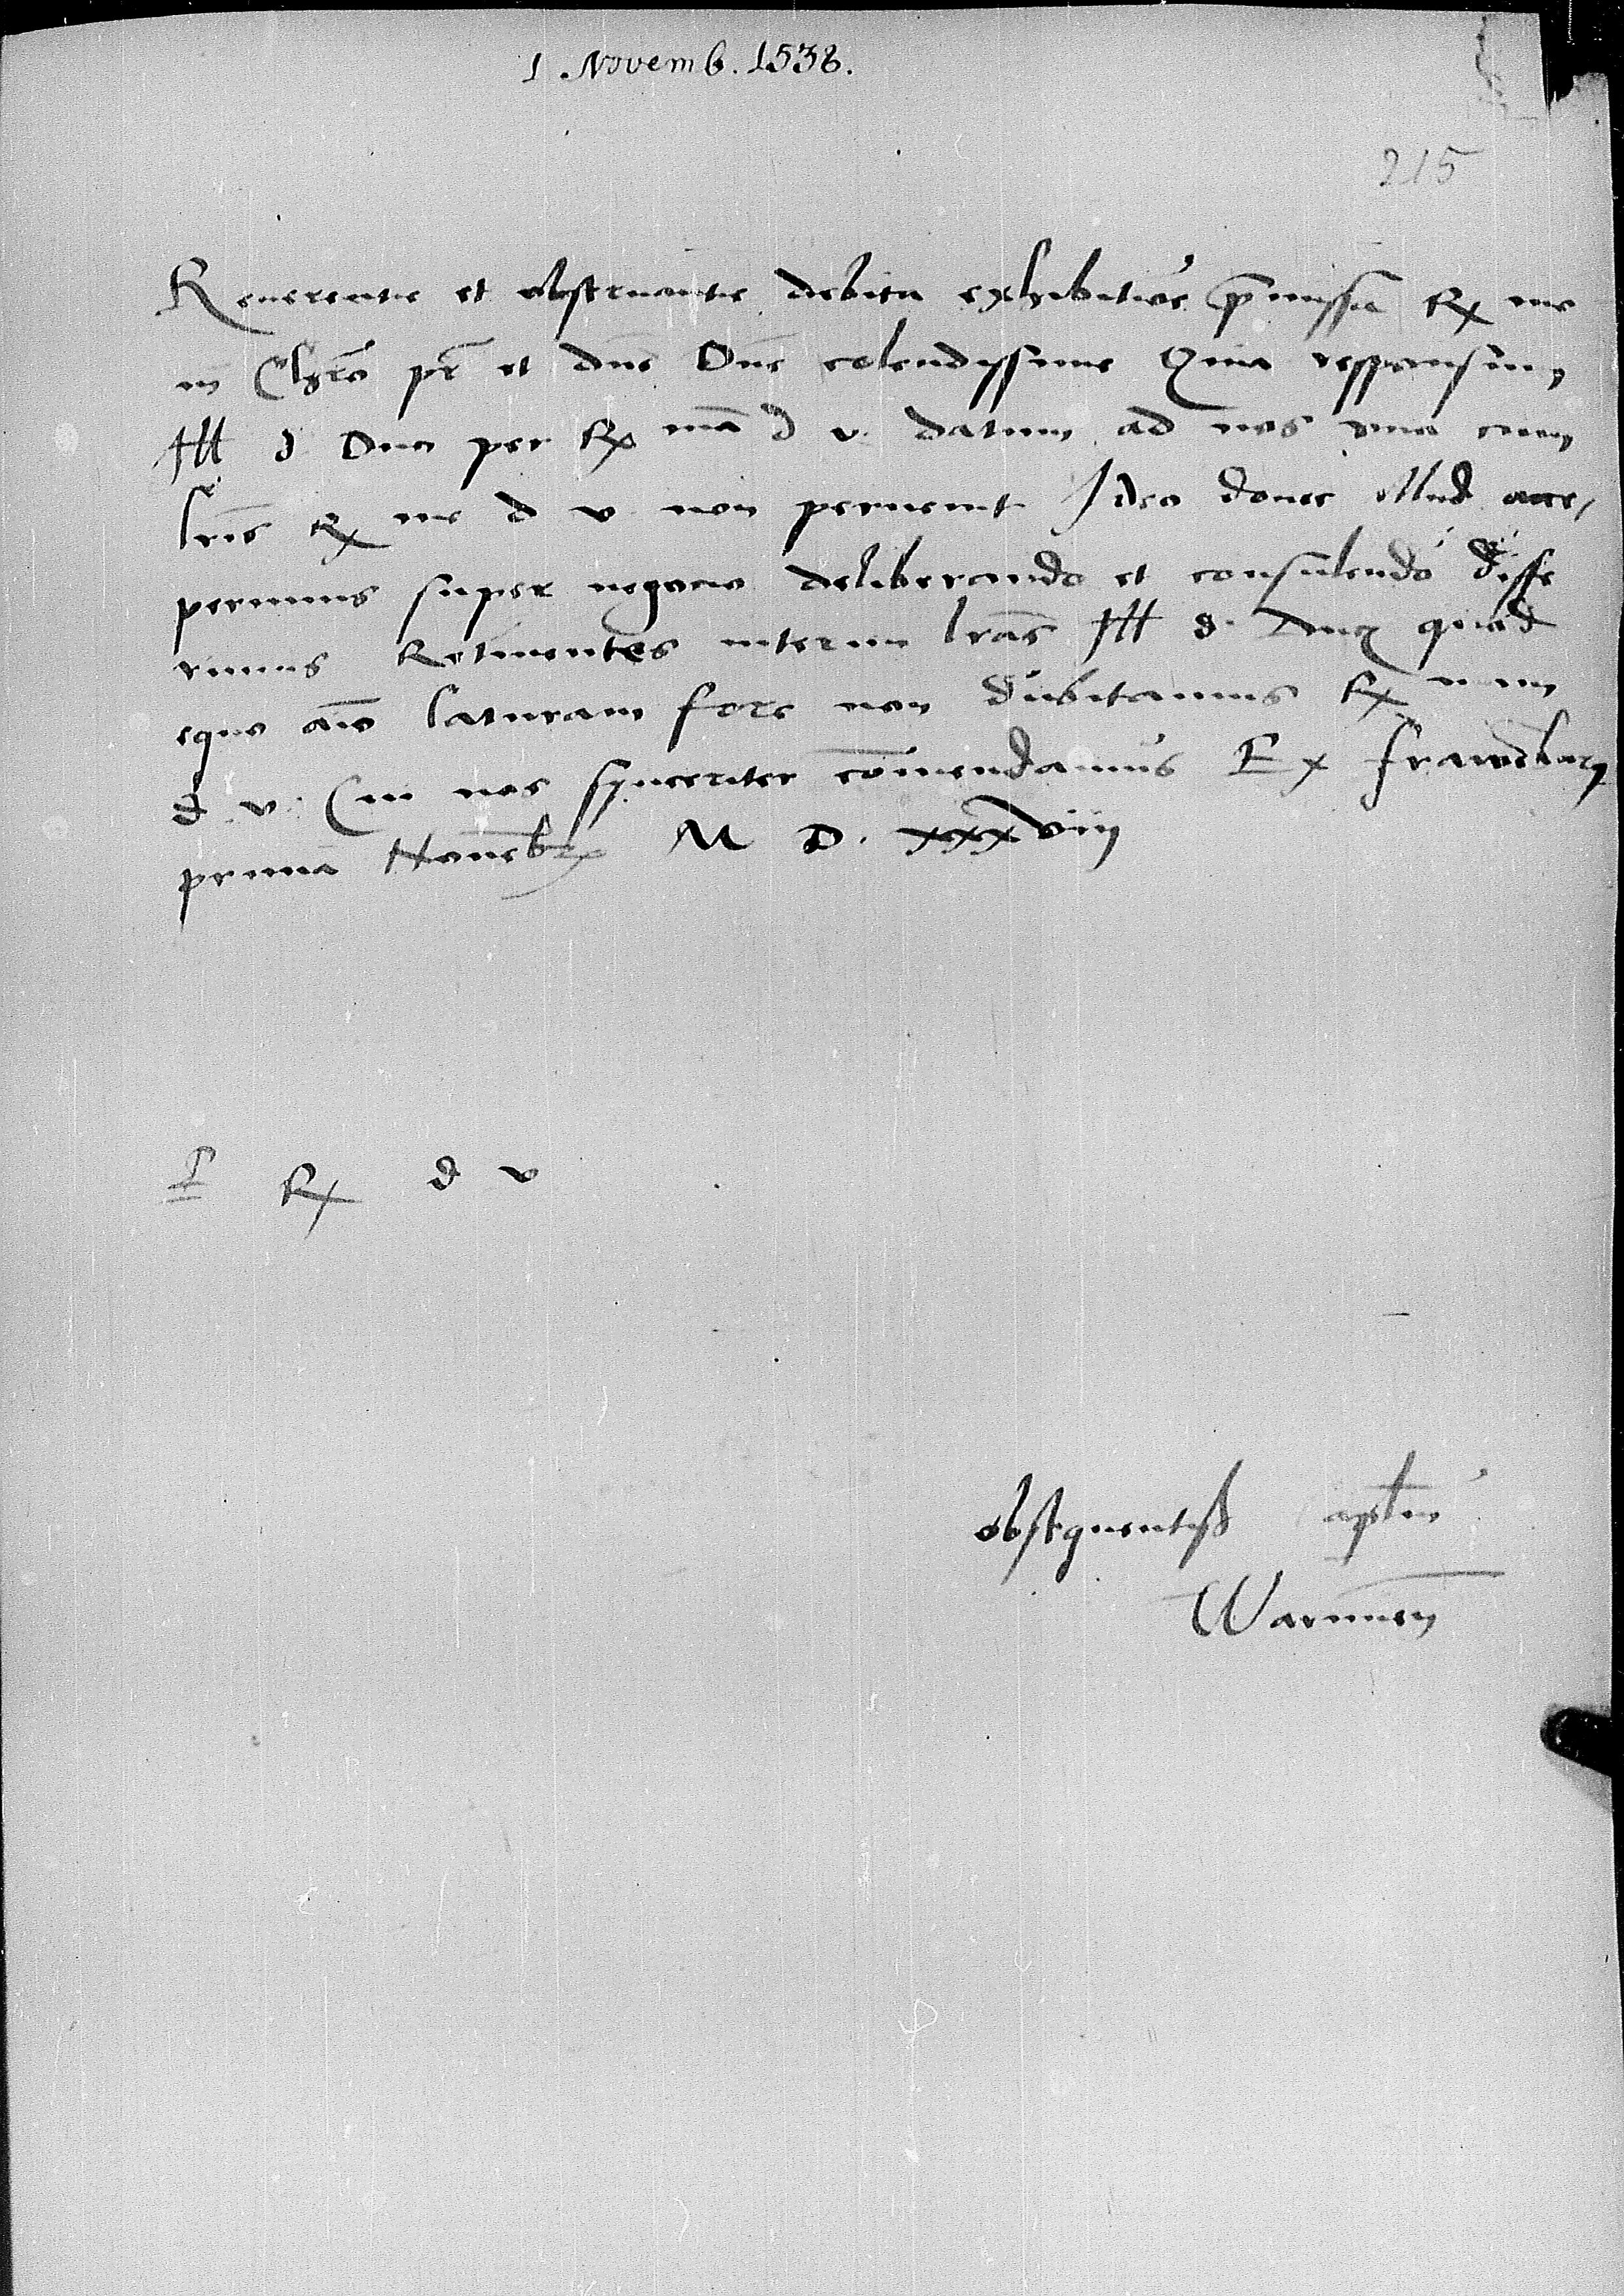 1. Novemb. 1538.
215
Reverentie et observantie debita exhibitioe pmissa Rx me
in Chro pr et dne Dne colendissime Quia responsum
Ill d Duci per Rx ma d v. datum ad nos una cum
lris Rx me d v non pervenit Ideo donec illud acce,
perimus super negocio deliberando et consulendo diffe
rimus Retinentes interim lras Ill d. Ducis quod
equo aio laturam fore non dubitamus Rx
d v. Cui nos synceriter comendamus Ex Frawenburg
prima Novebr M D. xxxviii
Rx d v
obsequentiss Caplm
Warmien